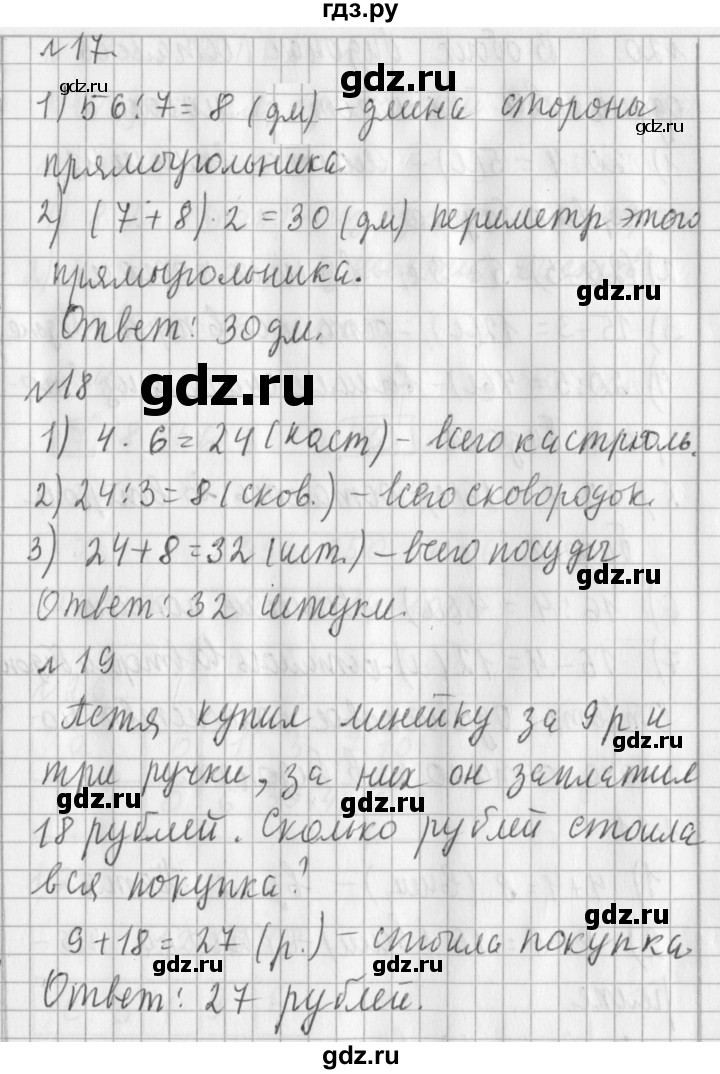 гдз.ру
№17.
gdz.ru
gdz.ru
1) 56:7=8 (дм) – длина стороны
gdz.ru
прямоугольника.
2) (7+8)·2=30(дм) периметр этого
прямоугольника.
gdz.ru
Ответ: 30дм.
№18
gdz.ru
1) 4·6=24(каст) – всего кастрюль.
2) 24:3=8(сков.) – всего сковородок.
3) 24+8=32(шт.) – всего посуды
gdz.ru
Ответ: 32 штуки.
№19
Петя купил линейку за 9р. и
gdz.ru
три ручки, за них он заплатил
gdz.ru gdz.ru
18 рублей. Сколько рублей стоила
вся покупка?
gdz.ru
9+18=27 (р.) – стоила покупка.
gdz.ru gdz.ru
Ответ: 27 рублей.
gdz.ru